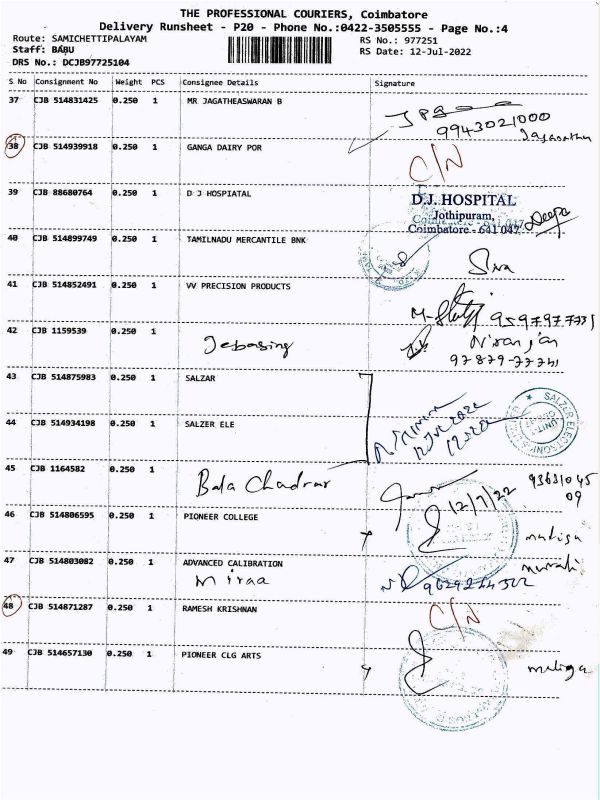 THE PROFESSIONAL COURIERS, Coimbatore
Delivery Runsheet - P20 - Phone No.:0422-3505555 - Page No.:4
Route: SAMICHETTIPALAYAM
RS No.: 977251
Staff: BABU
RS Date: 12-Jul-2022
DRS No.: DCJB97725104
S No Consignment No Weight PCS Consignee Details Signature
37 CJB 514831425 0.250 1 MR JAGATHEASWARAN B
9943021000
38 CJB 514939918 0.250 1 GANGA DAIRY POR C/N
39 CJB 88680764 0.250 1 D J HOSPIATAL
D.J. HOSPITAL
Jothipuram,
Coimbatore - 641 047
Deepa
40 CJB 514899749 0.250 1 TAMILNADU MERCANTILE BNK
Siva
41 CJB 514852491 0.250 1 VV PRECISION PRODUCTS
42 CJB 1159539 0.250 1
Jebasing
Niranjan
43 CJB 514875983 0.250 1 SALZAR
44 CJB 514934198 0.250 1 SALZER ELE
45 CJB 1164582 0.250 1
12/7/22
93631045
09
46 CJB 514806595 0.250 1 PIONEER COLLEGE
47 CJB 514803082 0.250 1 ADVANCED CALIBRATION
murali
48 CJB 514871287 0.250 1 RAMESH KRISHNAN C/N
49 CJB 514657130 0.250 1 PIONEER CLG ARTS